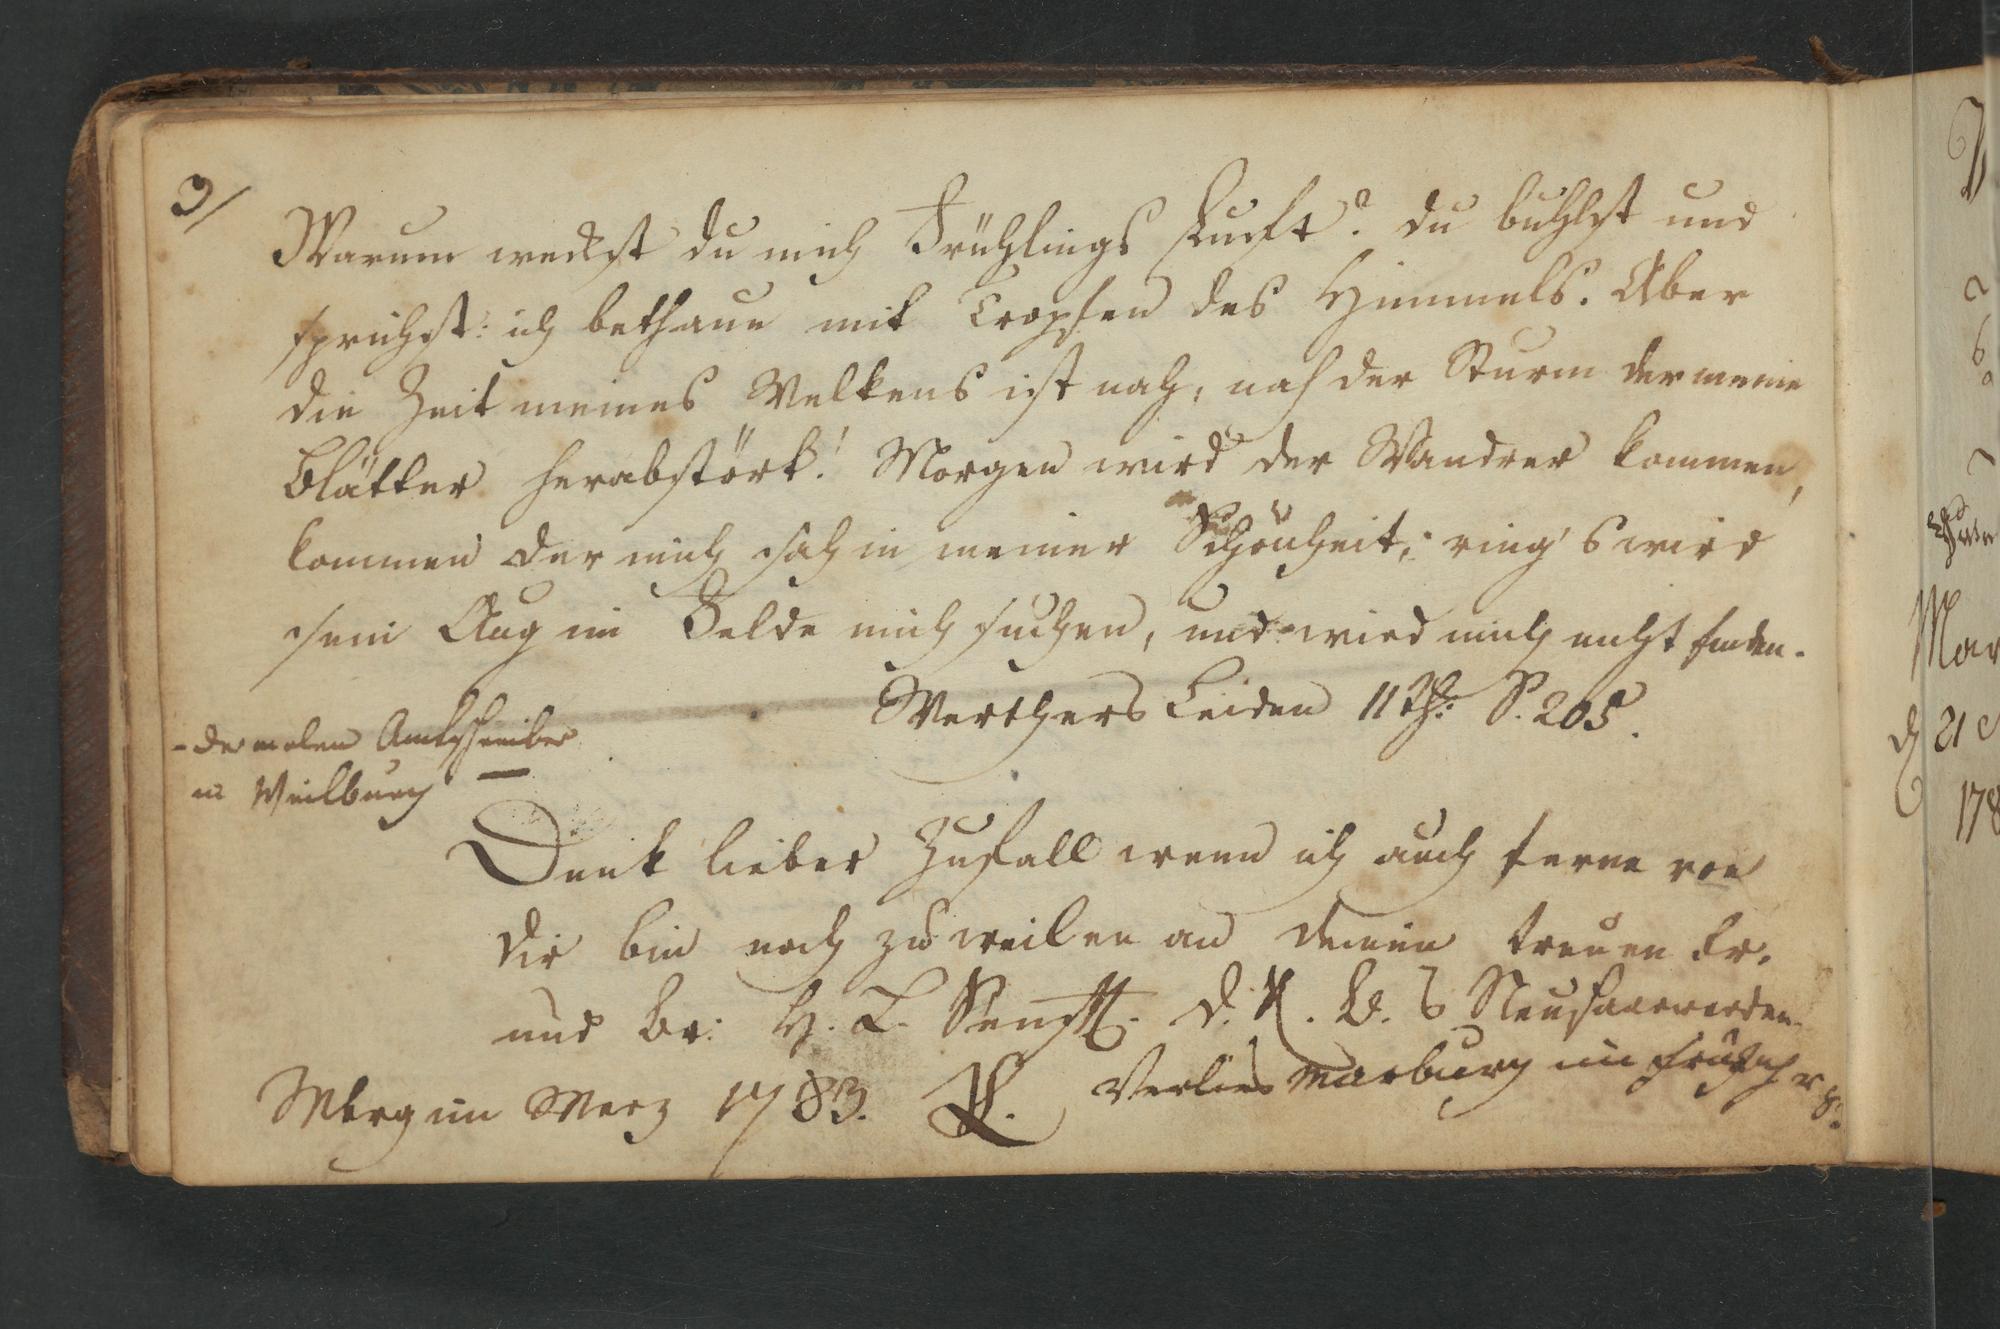 3/
Warum weckst du mich Frühlings Luft? du buhlst und
sprichst: ich bethaue mit Tropfen des Himmels. Aber
die Zeit meines Welkens ist nah, nah der Sturm der meine
Blätter herabstört! Morgen wird der Wandrer kommen,
kommen der mich sah in meiner Schönheit, ring's wird
sein Aug im Felde mich suchen, und wird mich nicht finden.
Werthers Leiden II Th: S. 205.
- dermalen Amtsschreiber
in Weilburg -
Denk lieber Zufall wenn ich auch ferne von
dir bin noch zuweilen an deinen treuen Fr.
und Br: H. L. d. R. B. s Neusaarwerden.
Mbrg im Merz 1783.
Verlies Marburg im Frühjahr
Mar
d 21
178